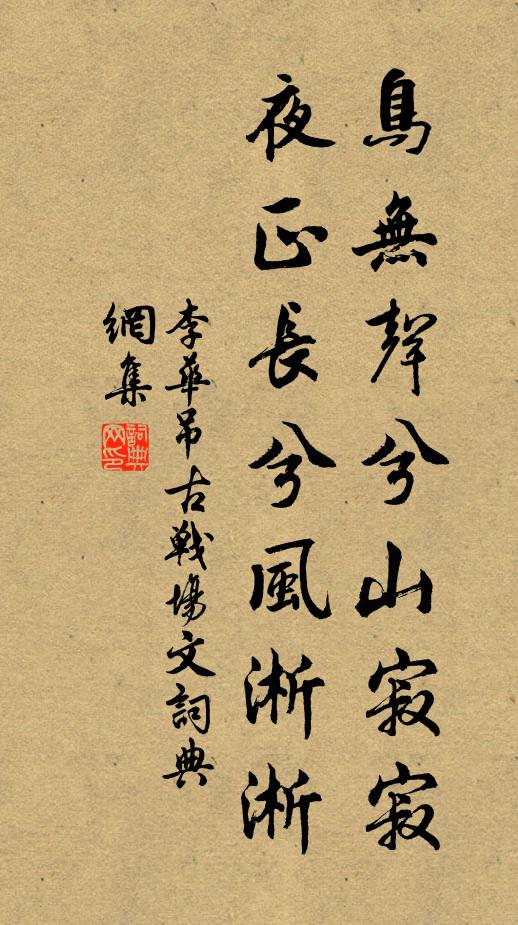 鳥無聲兮山寂寂
夜正長兮風淅淅
李華吊古戰場文詞典
網集
詞典
网印